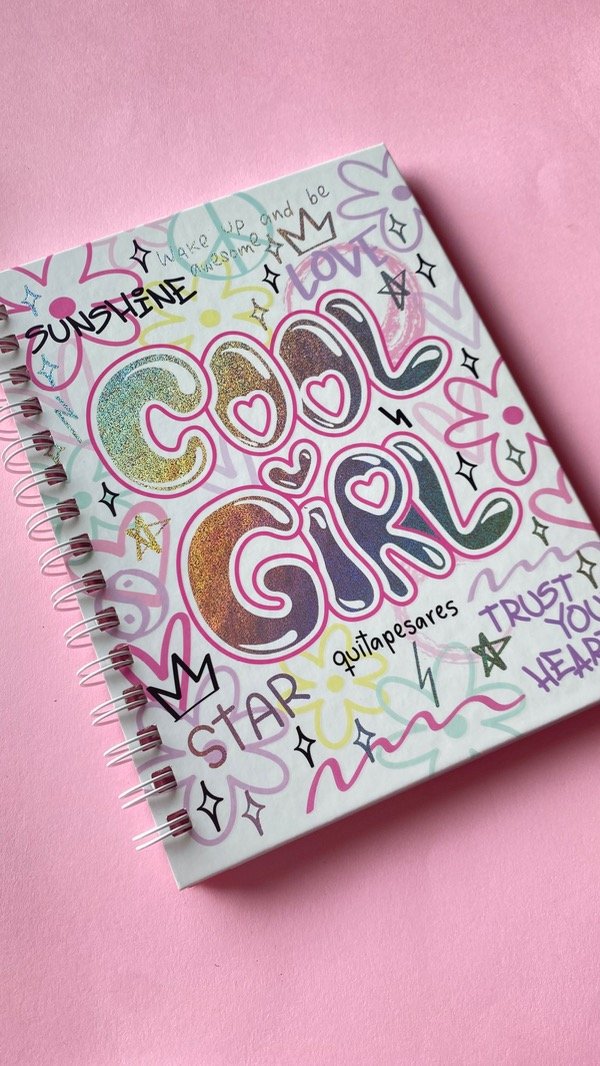 wake up and be
awesome
LOVE
SUNSHINE
COOL
GIRL
quitapesares
TRUST
YOU
HEAR
STAR